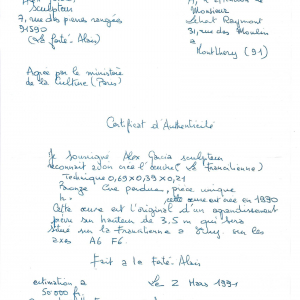 Sculpteur
7, rue des pierres rangées
91590
(La Ferté-Alais)
Agrée par le ministère
de la Culture (Paris)
A, l'attention de
Monsieur
Lehat Raymont
31, rue des Moulin
à
Montlhery (91)
Certificat d'Authenticité
Je soussigne Alex Garcia sculpteur
reconnait avoir crée l'oeuvre (La Francilienne)
Technique 0,69 x 0,39 x 0,21
Bronze Cire perdue, pièce unique
cette œuvre est crée en 1990
Cette œuvre est l'original d'un agrandissement
pour un hauteur de 3,5 m qui sera
situé sur la francilienne à sur les
axes A6 F6.
Fait a la Ferté-Alais
Le 2 Mars 1991
estimation à
50.000 frs.